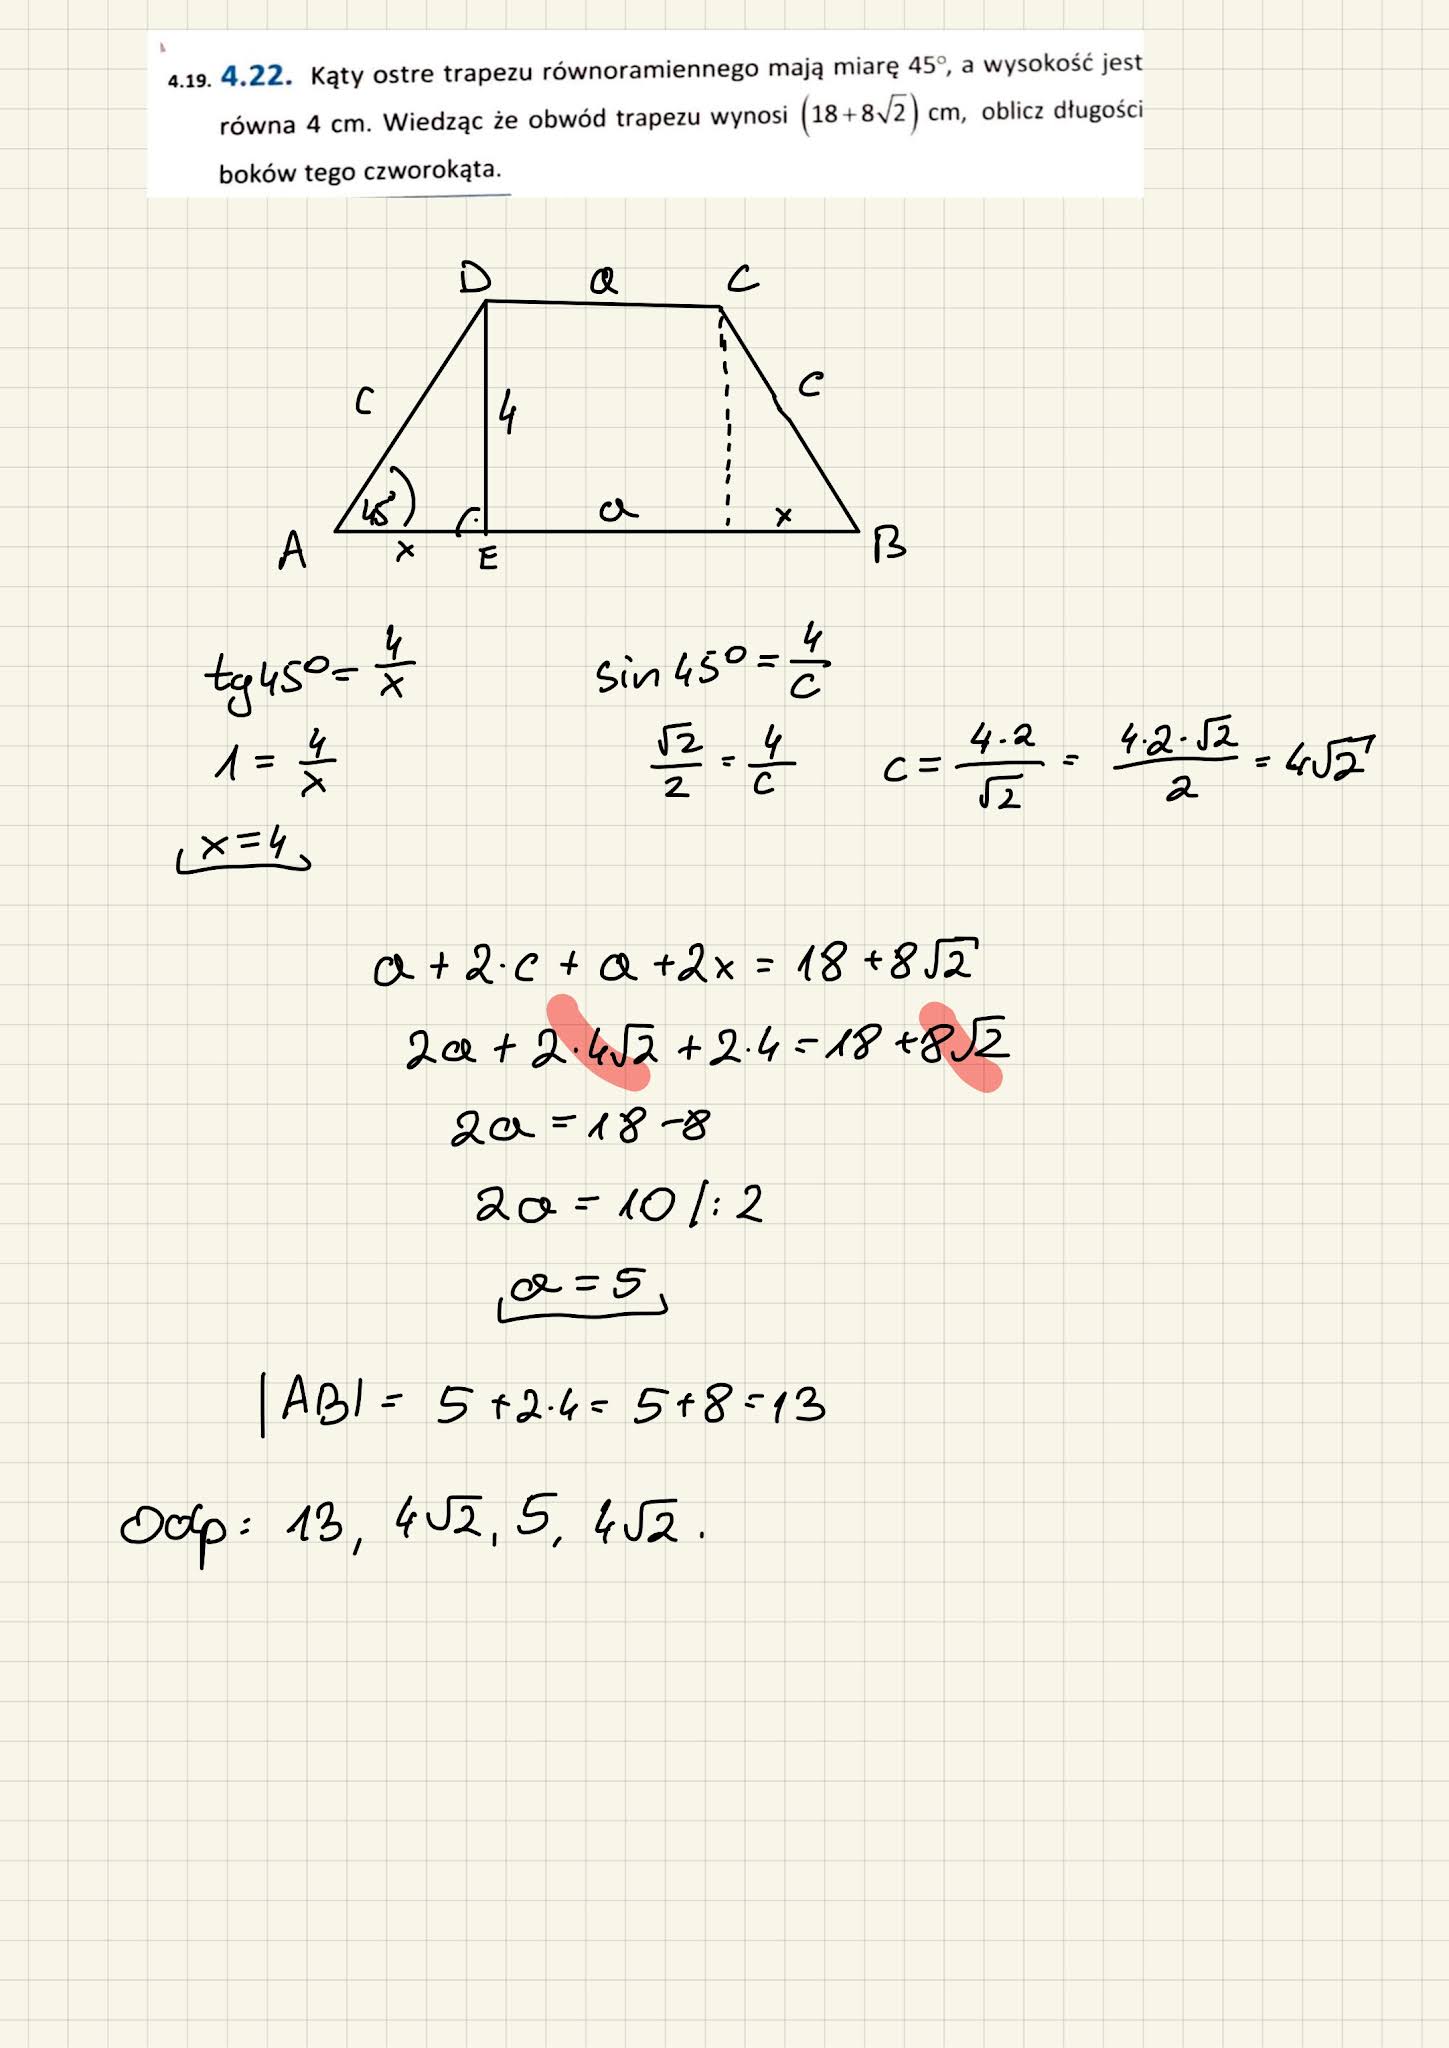 4.19. 4.22. Kąty ostre trapezu równoramiennego mają miarę 45°, a wysokość jest
równa 4 cm. Wiedząc że obwód trapezu wynosi (18+8√2) cm, oblicz długości
boków tego czworokąta.
D a C
C 4 C
45° a x
A x E B
tg45°=4/x sin45°=4/c
1=4/x √2/2=4/c c=4·2/√2=4·2·√2/2=4√2
x=4
a+2·c+a+2x=18+8√2
2a+2·4√2+2·4=18+8√2
2a=18-8
2a=10/:2
a=5
|AB|=5+2·4=5+8=13
Odp: 13, 4√2, 5, 4√2.